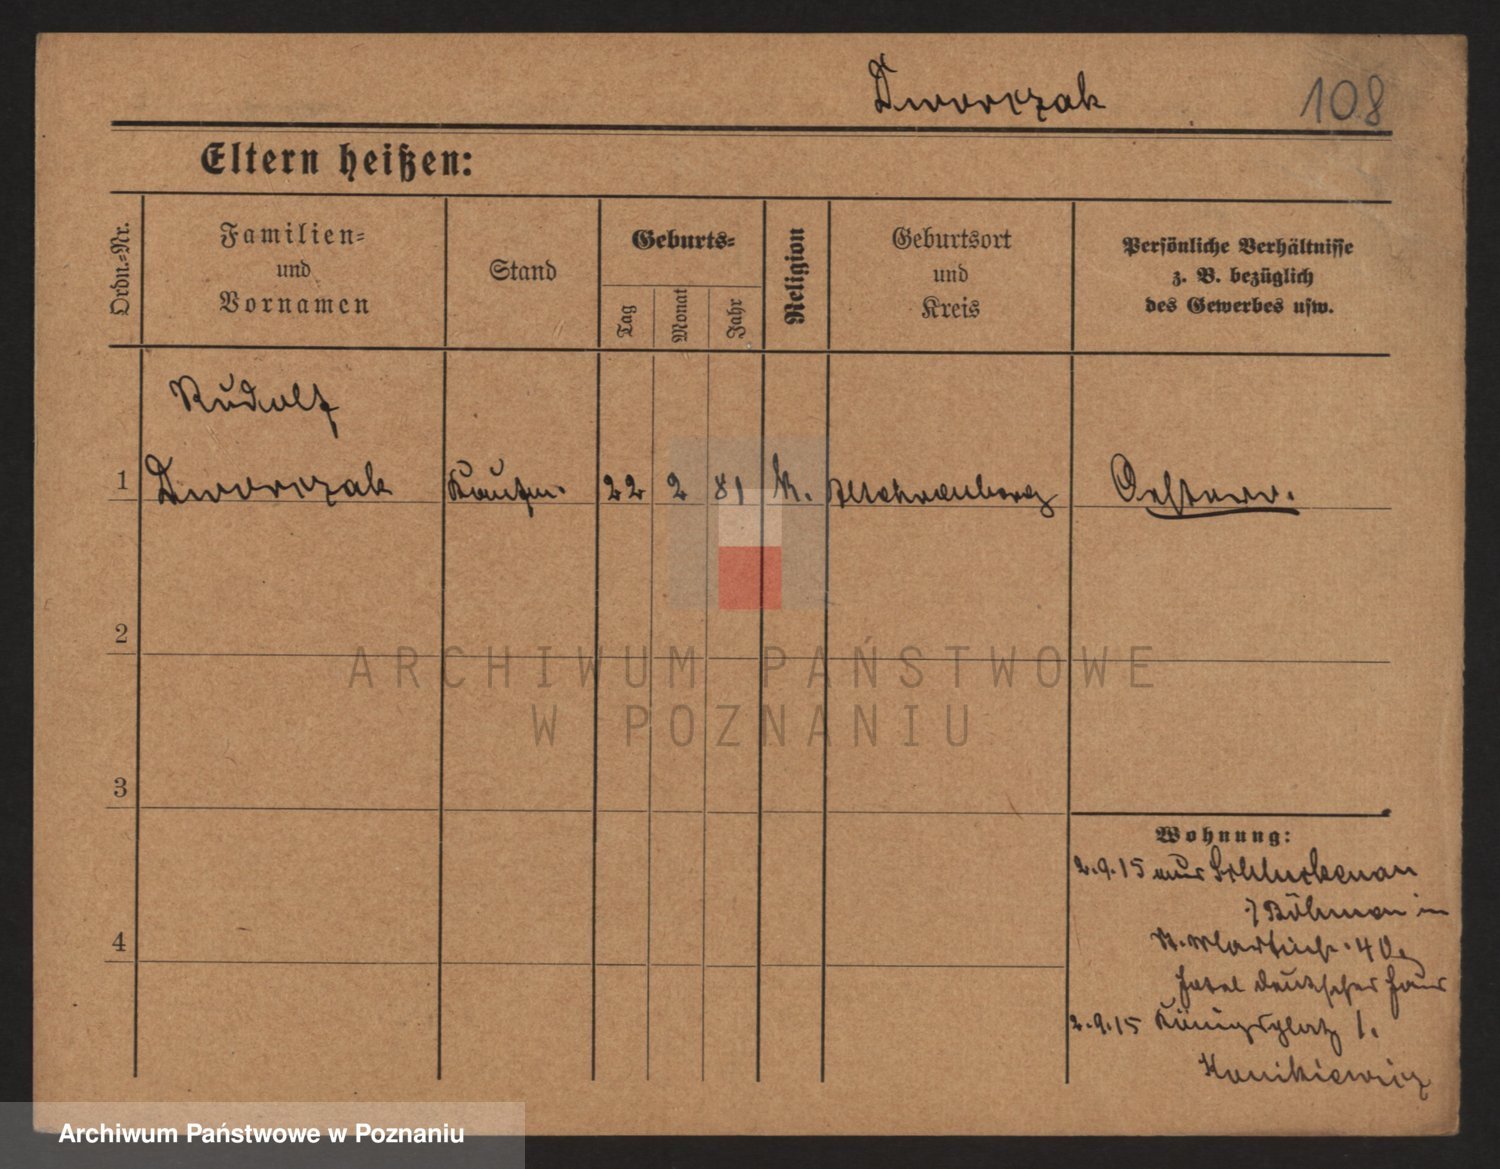 Dworczak
108
Eltern heißen:
Ordn.=Nr.
Familien=
und
Vornamen
Stand
Geburts=
Tag
Monat
Jahr
Religion
Geburtsort
und
Kreis
Persönliche Verhältnisse
z. B. bezüglich
des Gewerbes usw.
Rudolf
1 Dworczak Kaufm. 22 2 81 K. Altehrenberg Oesterr.
2
3
4
Wohnung:
2.9.15 aus Schluckenau
Böhmen in
St. Martinstr. 40
Hotel Deutscher Haus
2.9.15 Königsplatz 1.
ARCHIWUM PAŃSTWOWE
W POZNANIU
Archiwum Państwowe w Poznaniu